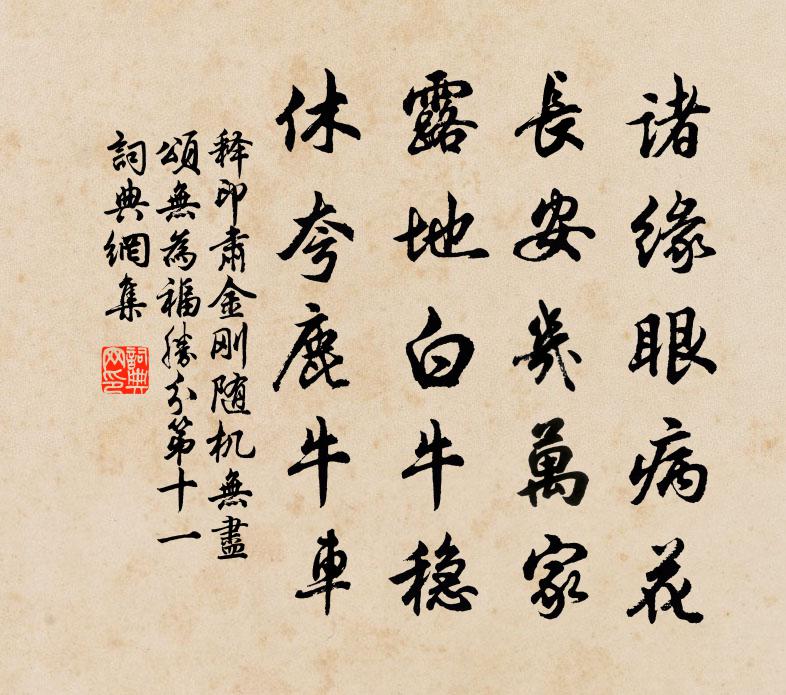 諸緣眼病花
長安幾萬家
露地白牛穩
休夸鹿牛車
释印肅金刚随机無盡
頌無為福勝分第十一
詞典網集
詞典网印